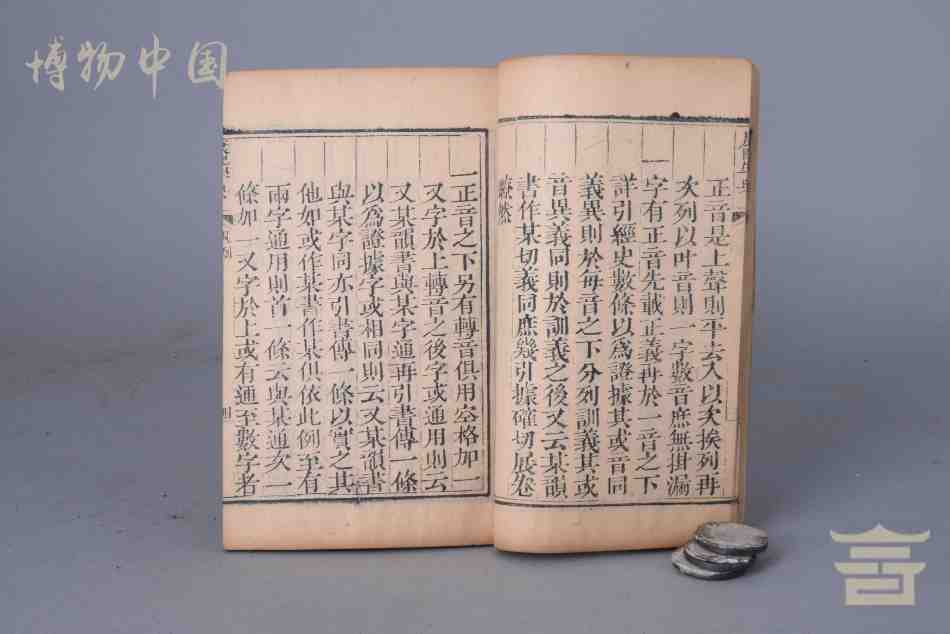 博物中国
正音是上聲則平去入以次挨列再
次列以叶音則一字數音庶無掛漏
一字有正音先載正義再於一音之下
詳引經史數條以爲證據其或音同
義異則於每音之下分列訓義其或
音異義同則於訓義之後又云某韻
書作某切義同庶幾引據確切展卷
瞭然
一正音之下另有轉音俱用空格加一
又字於上轉音之後字或通用則云
又某韻書與某字通再引書傳一條
以爲證據字或相同則云又某韻書
與某字同亦引書傳一條以實之其
他如或作某書作某俱依此例至有
兩字通用則首一條云與某通次一
條加一又字於上或有通至數字者